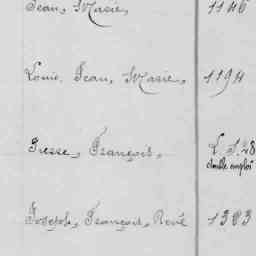 Jean, Marie, 1146
Louis, Jean, Marie, 1194
Presse, François, L. S. 28
double emploi
Joseph, François, René 1303